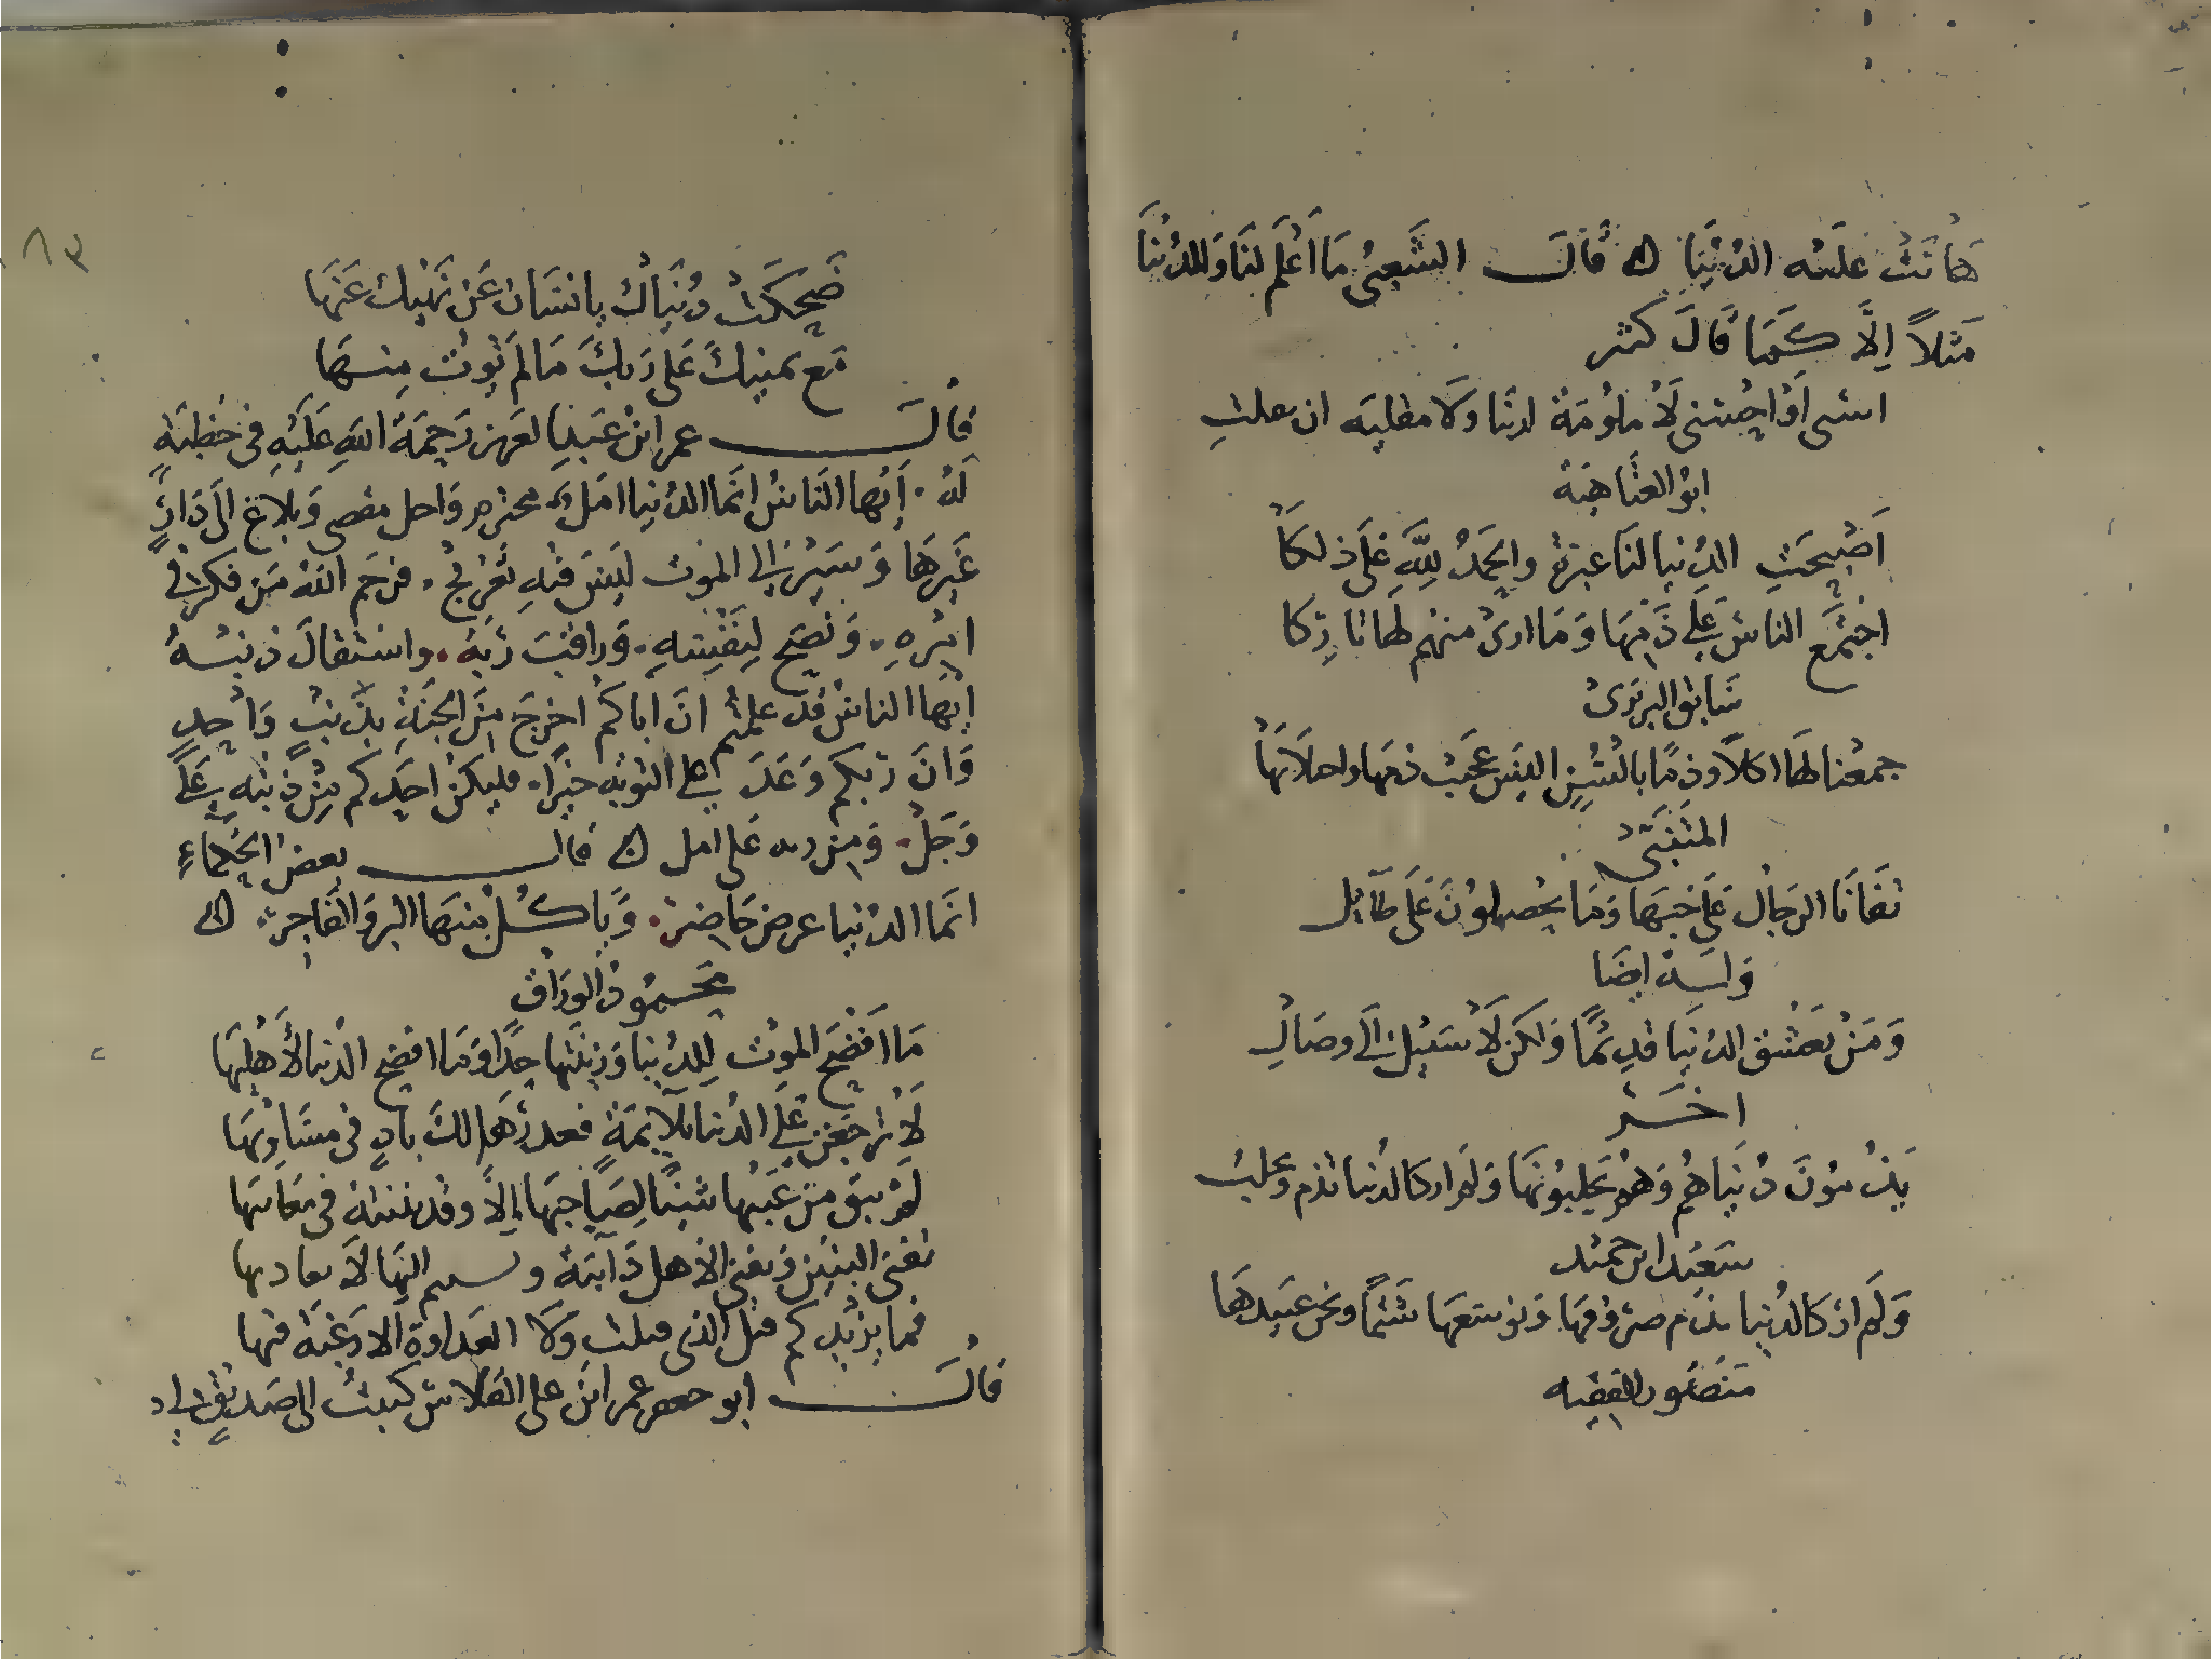 هَانَتْ عليْه الدُنْيَا ۞ قَالَ الشَّعِبىُ مَا اَعْلَم لنَا وَللدُنيَا
مَثلاً اِلَّا كَمَا قَالَ كثير
اسئى اوْ احسنى لَا ملوُمَة لدينَا ولَا مقليه ان تقلتِ
ابوُ العتَاهيَة
اَصْبحَتِ الدُنيا لنَا عبرةً والحَمدُ لِلَّهِ عَلَى ذلكَا
اجتمَع الناسُ عَلَى ذَمِهَا وَمَا ارىَ منهم لهَا تاركا
سَابق البربَرىُ
جمعْنا لهَا اكلاً وذمًا بالْسُنٍ اليسَ عجَيب ذمها واحلابهَا
المتنَبّى
تفَانَا الرجالُ عَلَى حُبهَا وَمَا يحُصلوُنَ عَلَى طَائِل
وَلَهُ ايضَا
وَمَنْ يَعْشق الدُنيَا قديمًا وَلكن لَا سَبيل اِلَى وصَالِ
اخَر
يَذُموُنَ دُنيَاهُم وَهُم يَحلبوُنهَا وَلم ار كالدُنيا تذم وتحلبُ
سَعيْد ابن حميْد
وَلَم ارَ كالدُنيا نذم صرُوُفهَا وَنوُسعهَا شتمًا ونحن عبيدهَا
منَصُور الفقيه
ضَحِكَتْ دُنيَاكَ يا انسَان عَن نَهْيك عَنهَا
مَع تمنيكَ عَلى رَبكَ مَا لم توُت مِنهَا
قالَ عمر ابنُ عَبد العَزيز رَحمَةُ اللهِ عَلَيْهِ فى خطبَةٍ
لهُ . اَيُها النَاسُ انَّما الدُنيا امَلٌ مخترم وَاجل منقص وَبلاغ اِلَى دَارٍ
غَيرهَا وَسَيْرٌ اِلى الموَت لَيسَ فيْهِ تَعْريجٌ . فرَحم اللهُ مَن فكرَ فى
امْرِهِ . وَنصَح لِنَفْسِهِ . وَراقبَ رَبهُ . واسْتقالَ ذنبَهُ
ايُها الناسُ قد علمتُم انَ اباكمُ اخرجَ مِنَ الجنَةِ بذَنبٍ وَاحِدٍ
وَانَ رَبكم وَعَدَ عَلى التوبَه خيْرًا . فليكنُ احَدكم مِنْ ذنبه عَلَى
وَجَلٍ . وَمن ربه عَلى امل ۞ قالَ بعضُ الحكماءِ
انَما الدُنيا عرض حَاضرُ . وَياكُلُ منهَا البر وَالفَاجر . ۞
محَموُدُ الورَاق
مَا افْضَح الموُت لِلدُنيا وَزينَتها جدًا وَمَا افضح الدُنيا لأَهلِهَا
لَا ترْجعَن عَلى الدُنيا بلَايمَةٍ فعذرُهَا لكَ بادٍ فى مسَاوِيهَا
لَم يبقَ من عَيبها شيئًا لِصَاحِبهَا اِلَّا وقد بينتهُ فى معَانيهَا
تفنى البنيْن وَتفنى الاهل دَايَبَة وسليم اليْهَا لَا يعاديها
فما يزيْدكم قتل الذى قتلت وَلَا العَداوة الا رَغبَة فيها
قالَ ابو حفص عمر ابن على الفَلَاس كتبتُ الى صَديقٍ لى